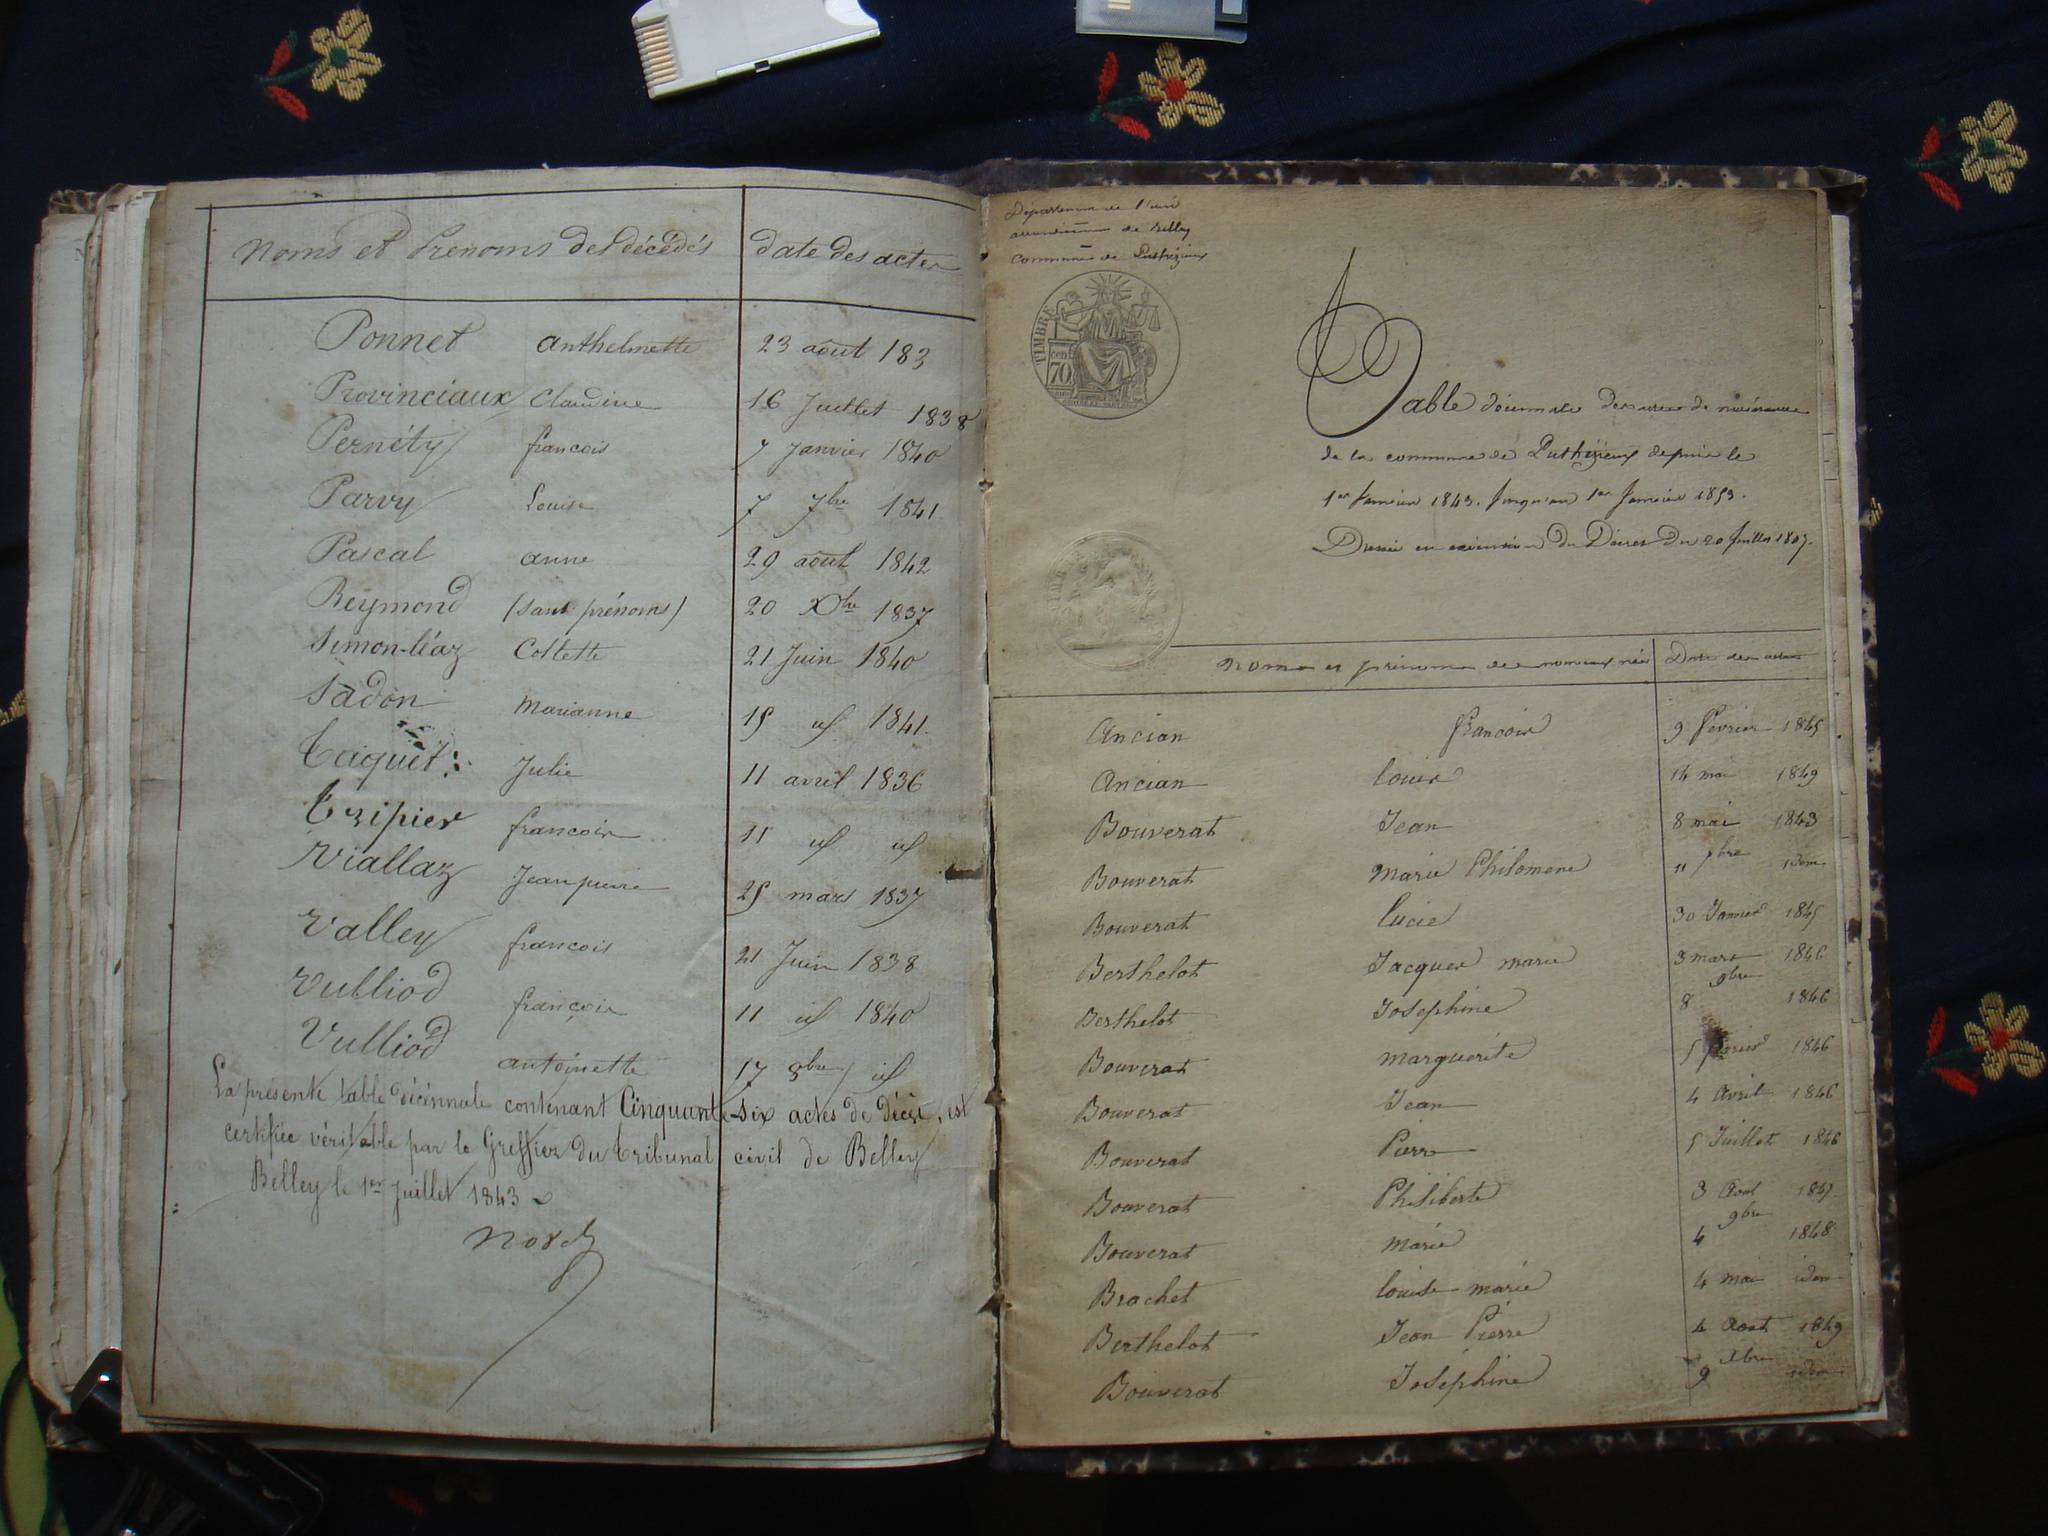 Noms et Prénoms des décédés date des actes
Ponnet anthelmette 23 août 183
Provinciaux Claudine 16 Juillet 1838
Pernéty francois 7 Janvier 1840
Parvy Louise 7 7bre 1841
Pascal anne 29 août 1842
Reymond (sans prénoms) 20 Xbre 1837
Simon-léaz Collette 21 Juin 1840
Sadon Marianne 15 id 1841
Taquet Julie 11 avril 1836
Tripier francois 11 id id
Viallaz Jean pierre 25 mars 1837
Valley francois 21 Juin 1838
Vulliod françois 11 id 1840
Vulliod antoinette 17 8bre id
La présente table décennale contenant Cinquante-six actes de décès, est
certifiée véritable par le Greffier du tribunal civil de Belley
Belley le 1er Juillet 1843
Département de l'ain
arrondissement de Belley
Commune de Puthézieux
TIMBRE
70 cent
Table décennale des actes de naissance
de la commune de Puthézieux depuis le
1er Janvier 1843. Jusqu'au 1er Janvier 1853.
Dressée en exécution du Décret du 20 Juillet 1807.
Noms et prénoms des nouveaux nés Date des actes
Ancian francois 9 février 1845
Ancian louis 14 mai 1849
Bouverat Jean 8 mai 1843
Bouverat Marie Philomene 11 7bre idem
Bouverat lucie 30 Janvier 1845
Berthelot Jacques marie 3 mars 1846
Berthelot Josephine 8 9bre 1846
Bouverat marguerite 5 février 1846
Bouverat Jean 4 Avril 1846
Bouverat Pierre 5 Juillet 1846
Bouverat Philiberte 3 Aout 1847
Bouverat marie 4 9bre 1848
Brachet louise marie 4 mai idem
Berthelot Jean Pierre 4 Aout 1849
Bouverat Joséphine 9 xbre idem